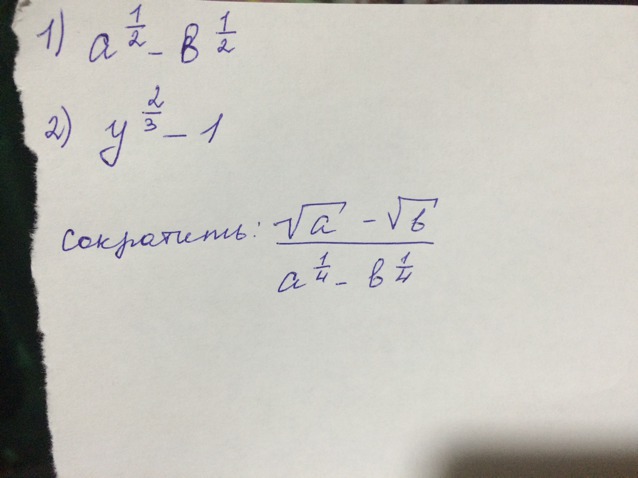 1) a^{\frac{1}{2}} - в^{\frac{1}{2}}
2) y^{\frac{2}{3}} - 1
Сократить: \frac{\sqrt{a} - \sqrt{в}}{a^{\frac{1}{4}} - в^{\frac{1}{4}}}